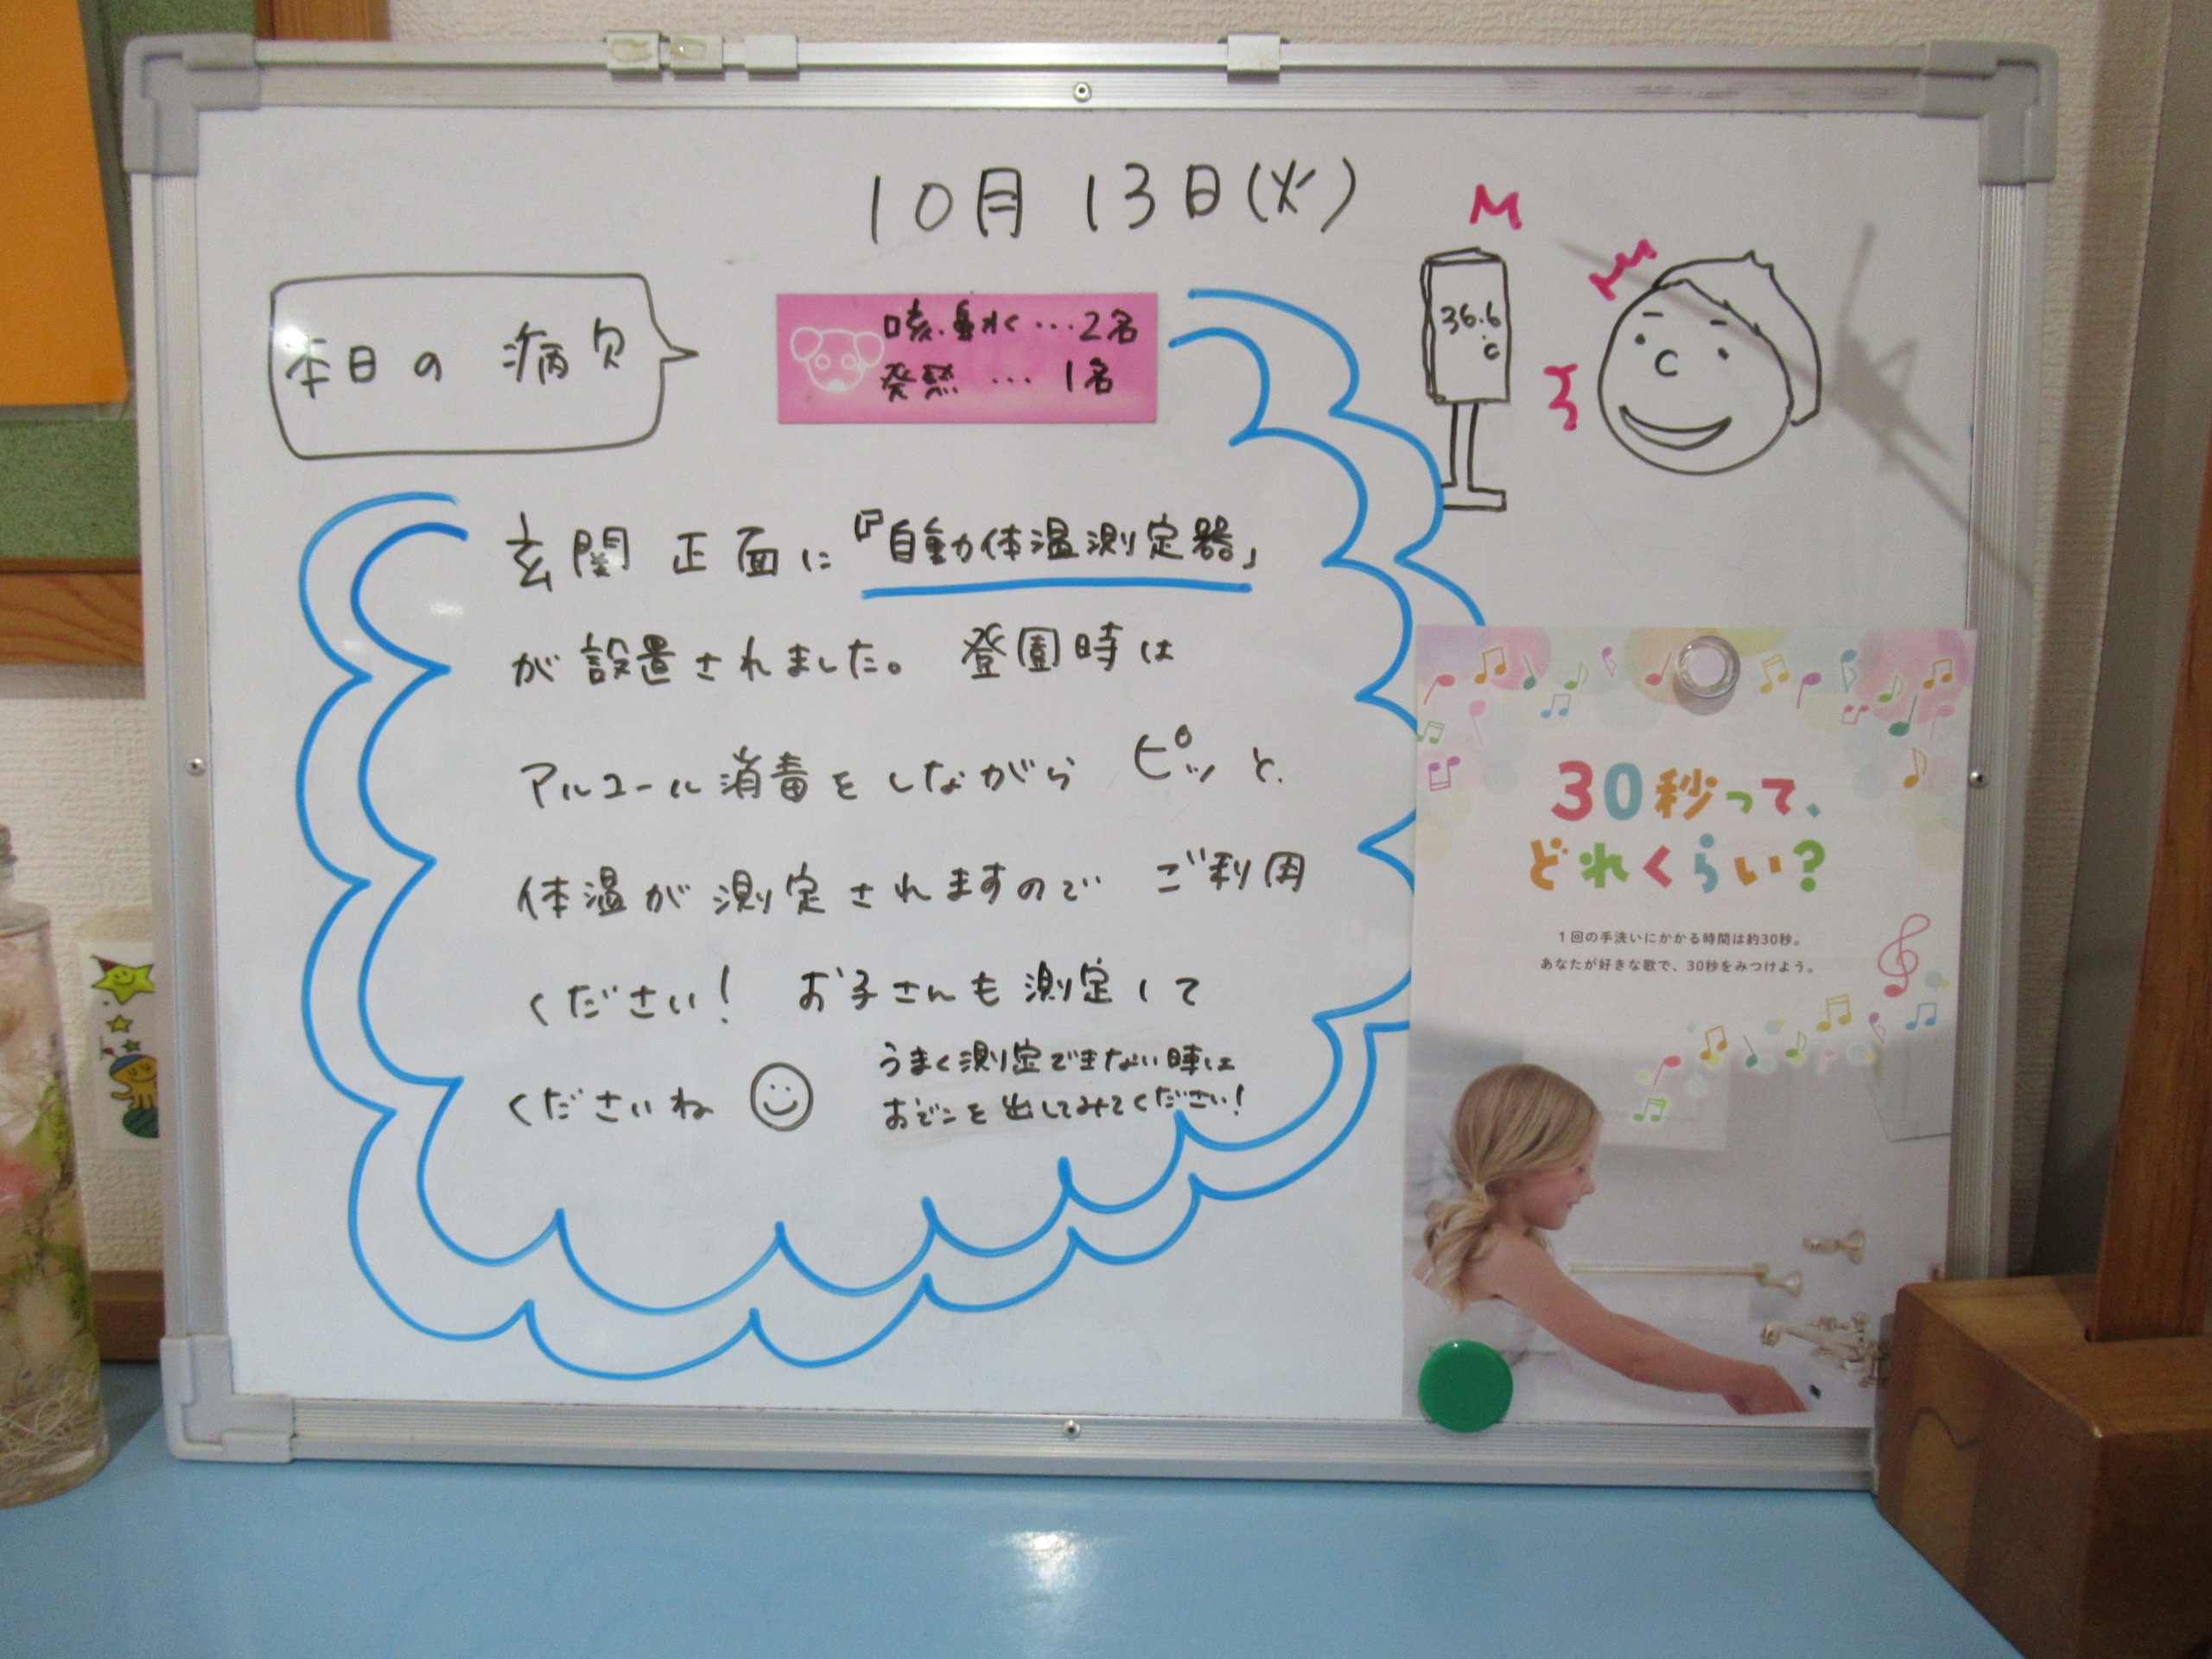 10月13日(火)
本日の 病欠
咳・鼻水…2名
発熱 … 1名
36.6
℃
玄関 正面に『自動体温測定器』
が設置されました。 登園時は
アルコール消毒をしながら ピッと
体温が測定されますので ご利用
ください! お子さんも測定して
くださいね
うまく測定できない時は
おでこを出してみてください!
30秒って、
どれくらい?
1回の手洗いにかかる時間は約30秒。
あなたが好きな歌で、30秒をみつけよう。